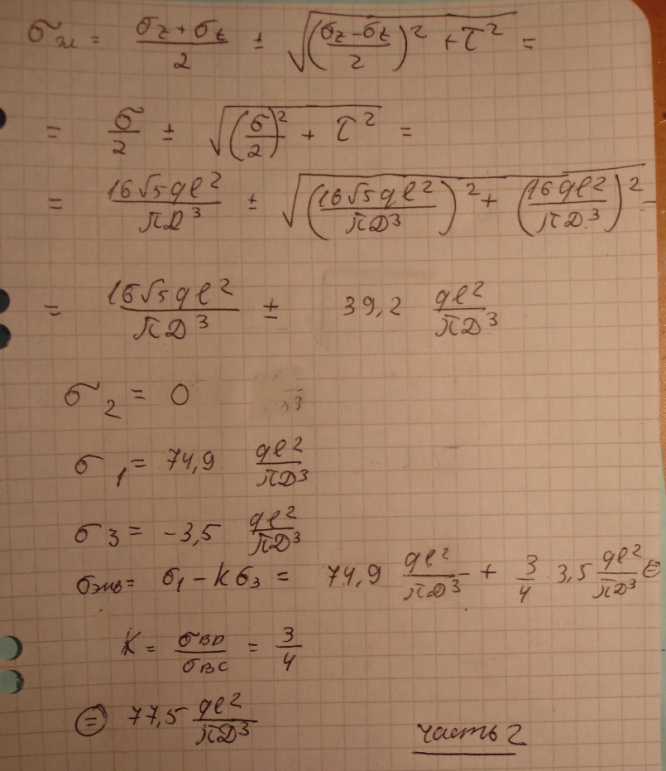 σ_гл = (σ_z + σ_t)/2 ± √(((σ_z − σ_t)/2)² + τ²) =
= σ/2 ± √((σ/2)² + τ²) =
= 16√5qℓ²/πD³ ± √((16√5qℓ²/πD³)² + (16qℓ²/πD³)²) =
= 16√5qℓ²/πD³ ± 39,2 qℓ²/πD³
σ₂ = 0
σ₁ = 74,9 qℓ²/πD³
σ₃ = −3,5 qℓ²/πD³
σ_экв = σ₁ − kσ₃ = 74,9 qℓ²/πD³ + 3/4 · 3,5 qℓ²/πD³ ⊜
K = σ_вр/σ_вс = 3/4
⊜ 77,5 qℓ²/πD³
часть 2